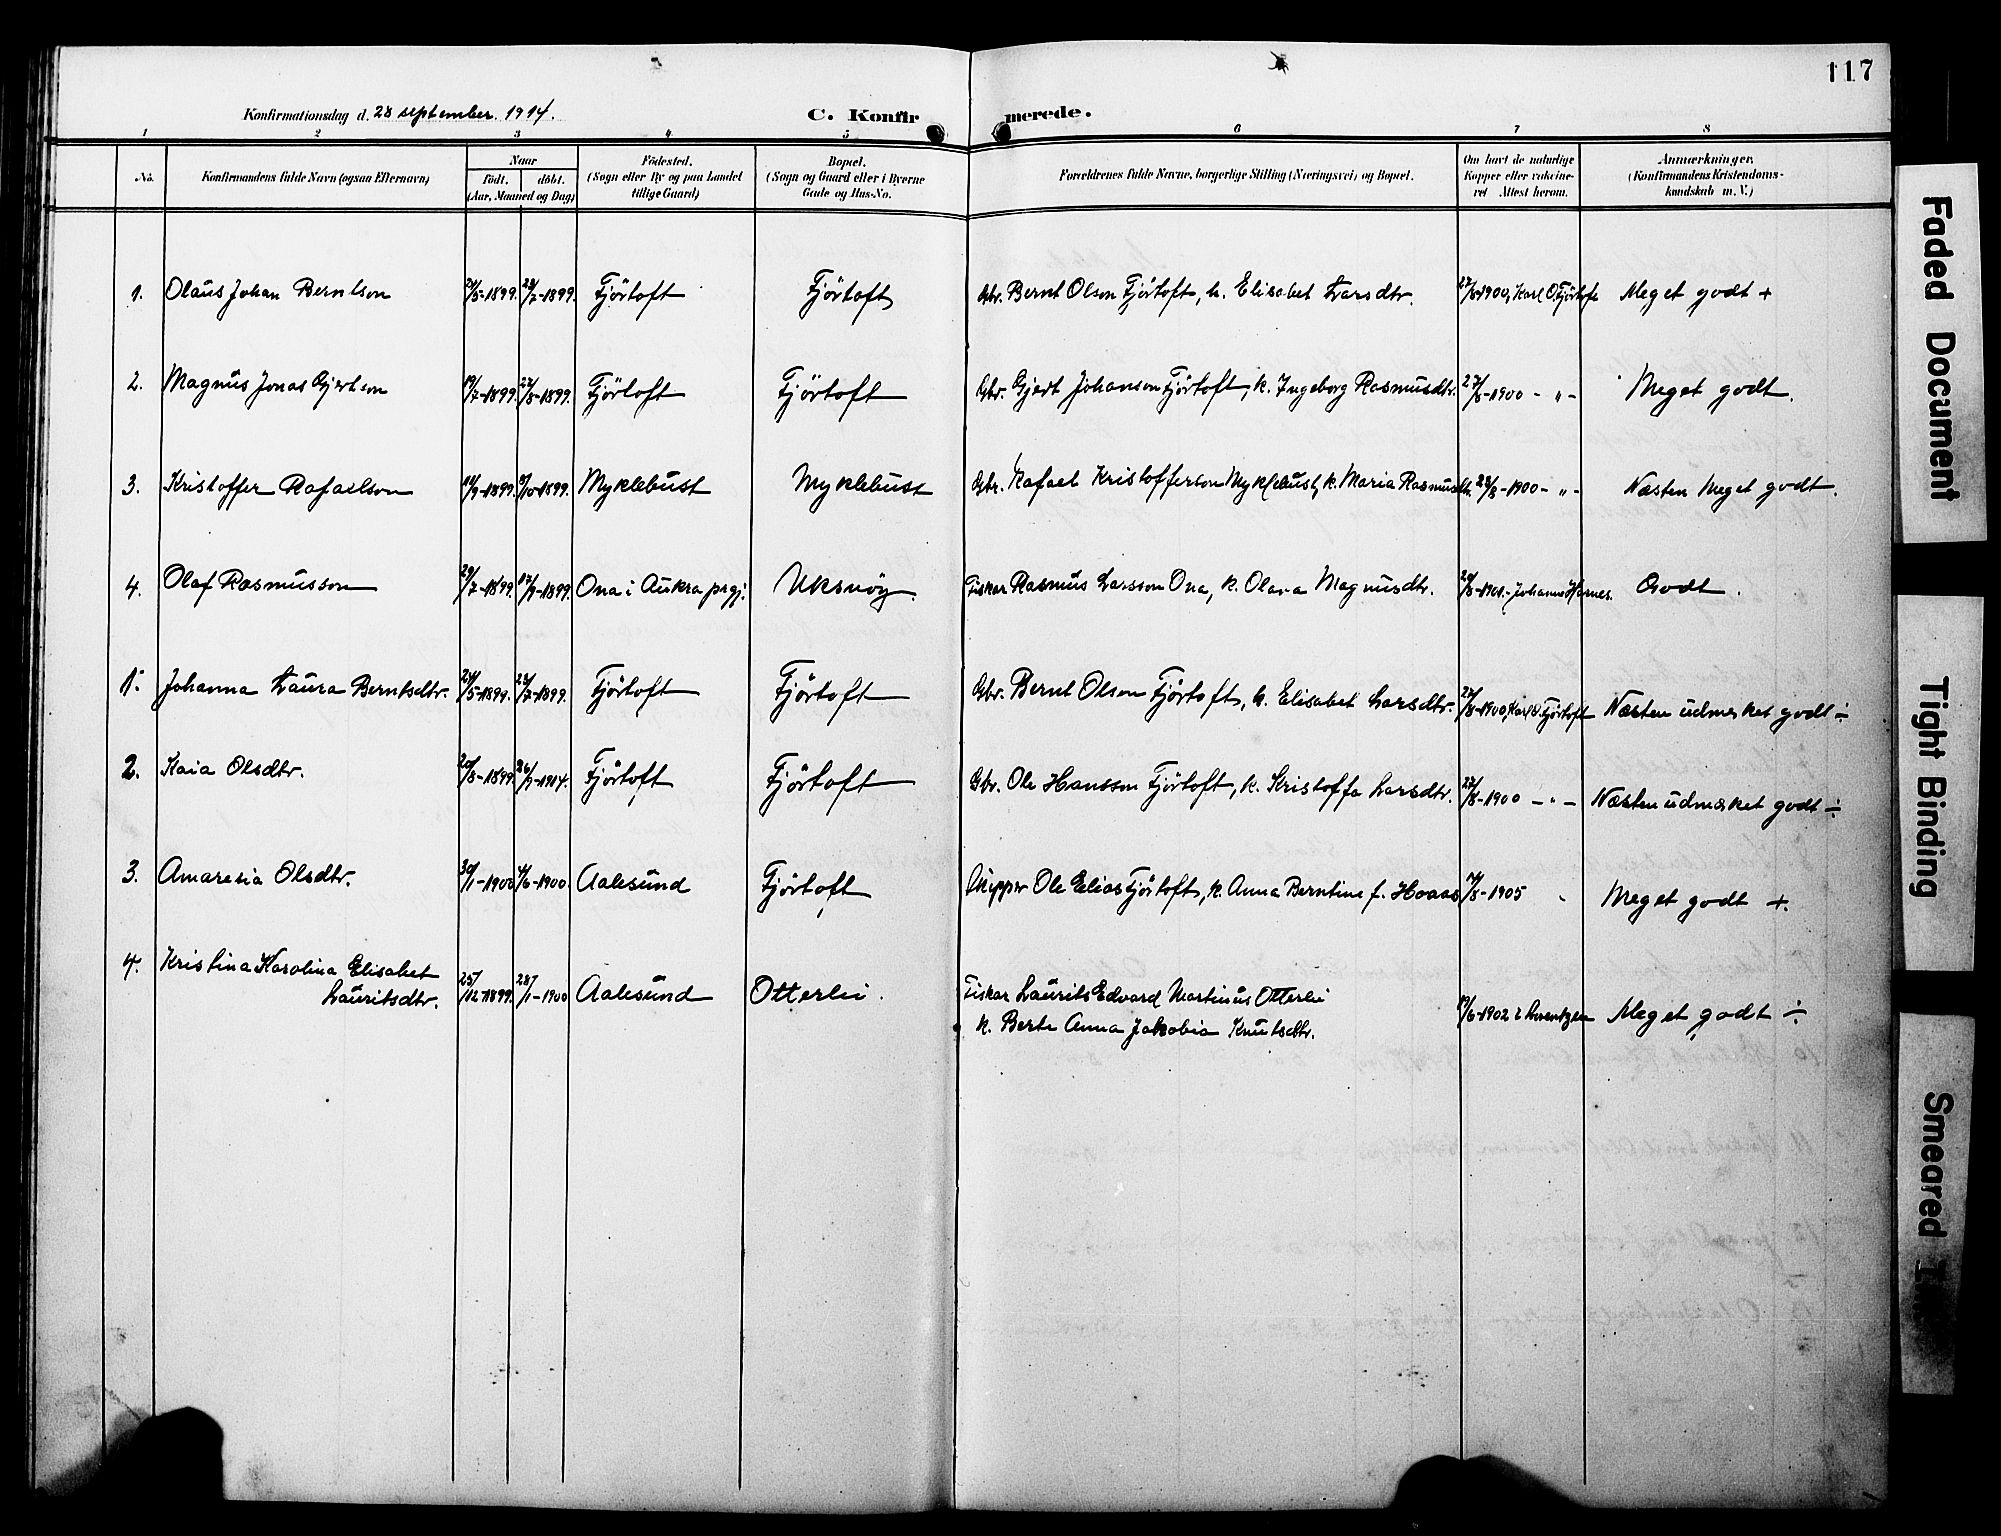 117
Konfirmationsdag d. 28 september. 1914. C. Konfirmerede.
1 2 3 4 5 6 7 8
No. Konfirmandens fulde Navn (ogsaa Efternavn) Naar Födt. döbt. (Aar, Maaned og Dag) Födested. (Sogn eller By og paa Landet tillige Gaard) Bopæl. (Sogn og Gaard eller i Byerne Gade og Hus-No. Forældrenes fulde Navne, borgerlige Stilling (Næringsvei) og Bopæl. Om havt de naturlige Kopper eller vakcineret Attest herom. Anmærkninger. (Konfirmandens Kristendomskundskab m. V.)
1. Olaus Johan Berntson /5-1899. 23/7-1899. Fjörtoft Fjörtoft Gbr. Bernt Olson Fjörtoft, k. Elisabet Larsdtr. 27/8-1900, Karl O. Fjörtoft Meget godt +
2. Magnus Jonas Gjertson 19/7-1899 27/8-1899. Fjörtoft Fjörtoft Gbr. Gjert Johanson Fjörtoft, k. Ingeborg Rasmusdtr. 27/8-1900 - " - Meget godt.
3. Kristoffer Rafaelson 14/9-1899 /10-1899. Myklebust Myklebust Gbr. Rafael Kristofferson Myklebust, k. Maria Rasmusdtr. 28/8-1900 - " - Næsten Meget godt.
4. Olaf Rasmusson 29/7-1899. 17/9-1899. Ona i Aukra prgj. Uksnöy. Fiskar Rasmus Larsson Ona, k. Olava Magnusdtr. /8-1901.- Johannes Harnes. Godt.
1. Johanna Laura Berntsdtr. /5-1899. 23/7-1899. Fjörtoft Fjörtoft Gbr. Bernt Olson Fjörtoft, k. Elisabet Larsdtr. 27/8-1900, Karl O. Fjörtoft Næsten udmerket godt ÷
2. Kaia Olsdtr. 20/8-1899 26/9-1914. Fjörtoft Fjörtoft Gbr. Ole Hansson Fjörtoft, k. Kristoffa Larsdtr. 27/8-1900 - " - Næsten udmerket godt ÷
3. Amaresia Olsdtr. 30/1-1900 4/6-1900. Aalesund Fjörtoft Skipper Ole Elias Fjörtoft, k. Anna Berntine f. Hoaas /8-1905 Meget godt +.
4. Kristina Karolina Elisabet
Lauritsdtr. 25/12-1899. 28/1-1900 Aalesund Otterlei. Fiskar Laurits Edvard Martinus Otterlei
k. Berte Anna Jakobia Knutsdtr. 19/6-1902 Lorentzen Meget godt ÷
Faded Document
Tight Binding
Smeared